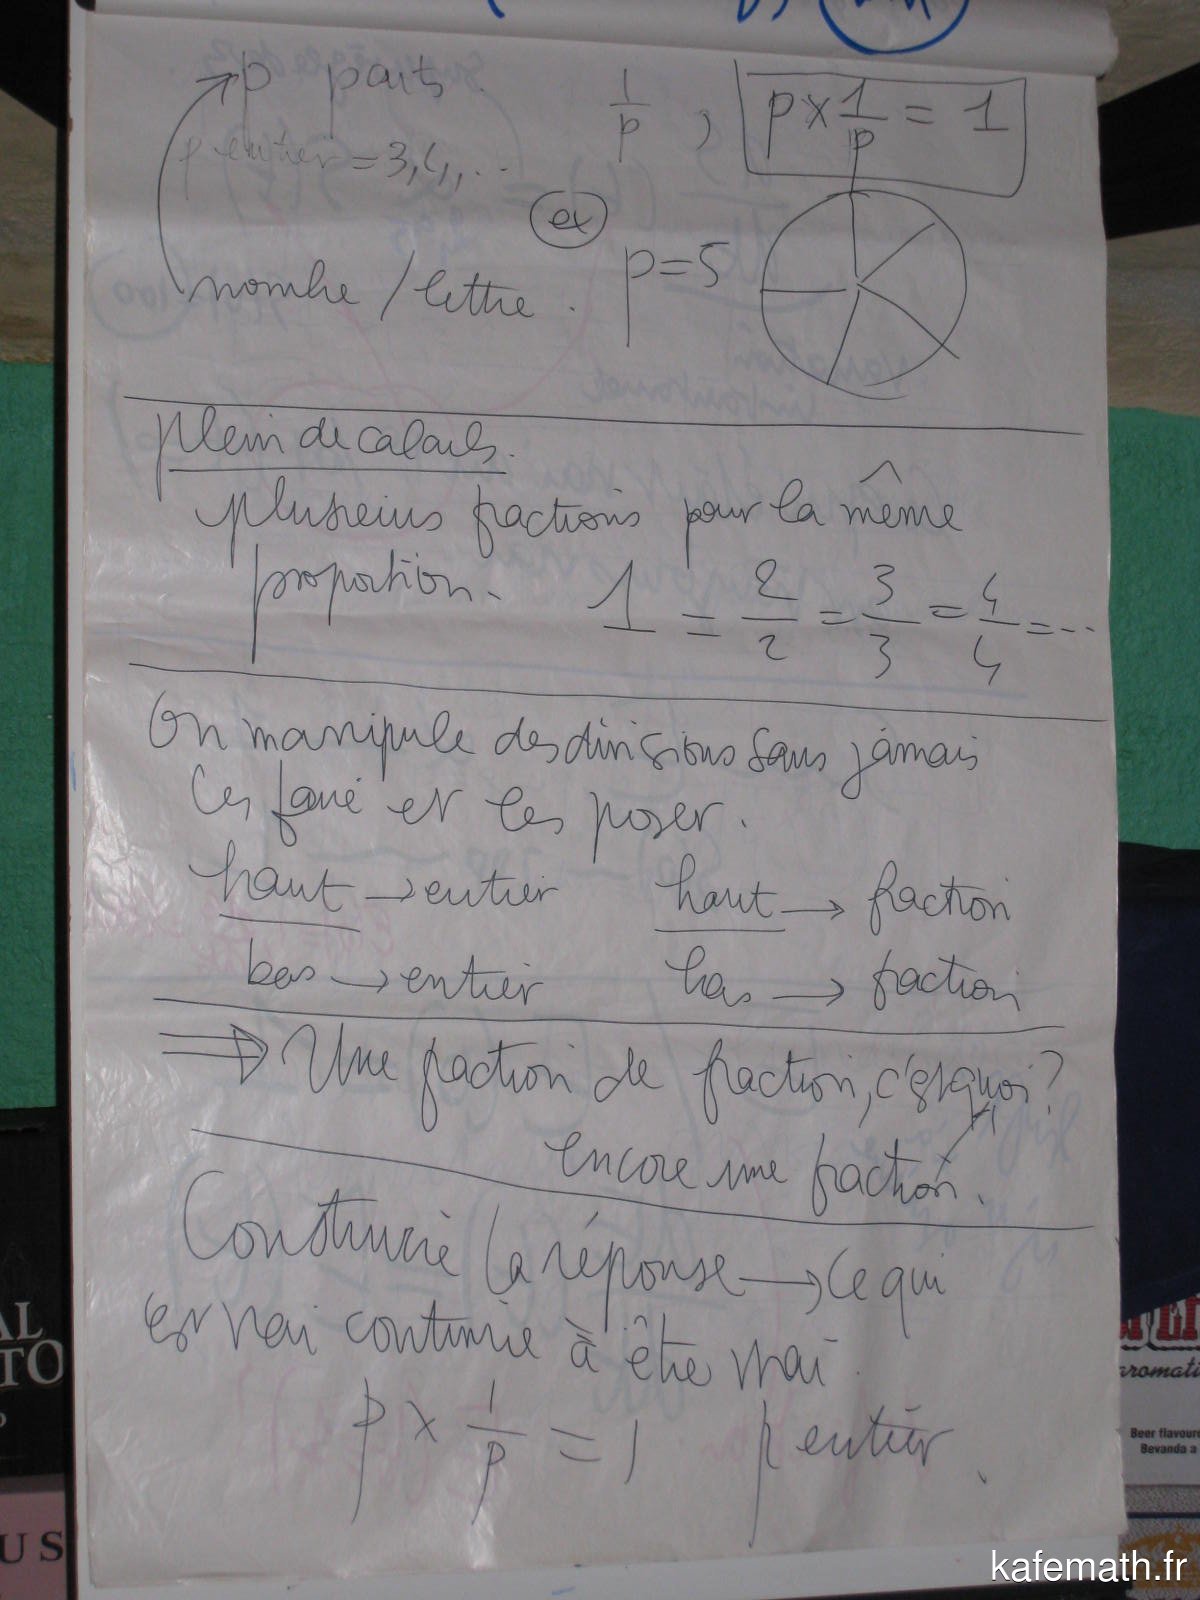 p parts.
1/p , p × 1/p = 1
p entier = 3,4,...
ex p = 5
nombre / lettre.
plein de calculs.
plusieurs fractions pour la même
proportion. 1 = 2/2 = 3/3 = 4/4 = ...
On manipule des divisions sans jamais
les faire et les poser.
haut → entier haut → fraction
bas → entier bas → fraction
⇒ Une fraction de fraction, c'est quoi?
encore une fraction.
Construire la réponse → ce qui
est vrai continue à être vrai.
p × 1/p = 1 p entier.
AL
TO
US
aromati
Beer flavoure
Bevanda a
kafemath.fr